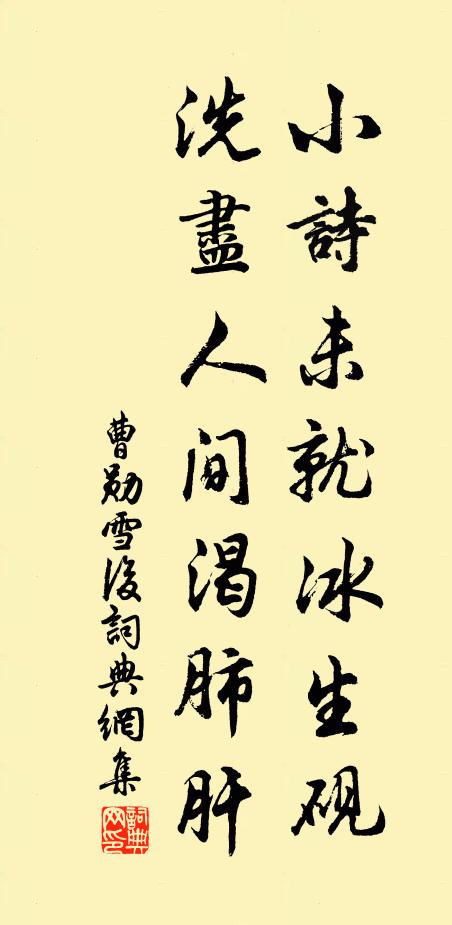 小詩未就冰生硯
洗盡人间渴肺肝
曹勛雪後詞典網集
詞典網印